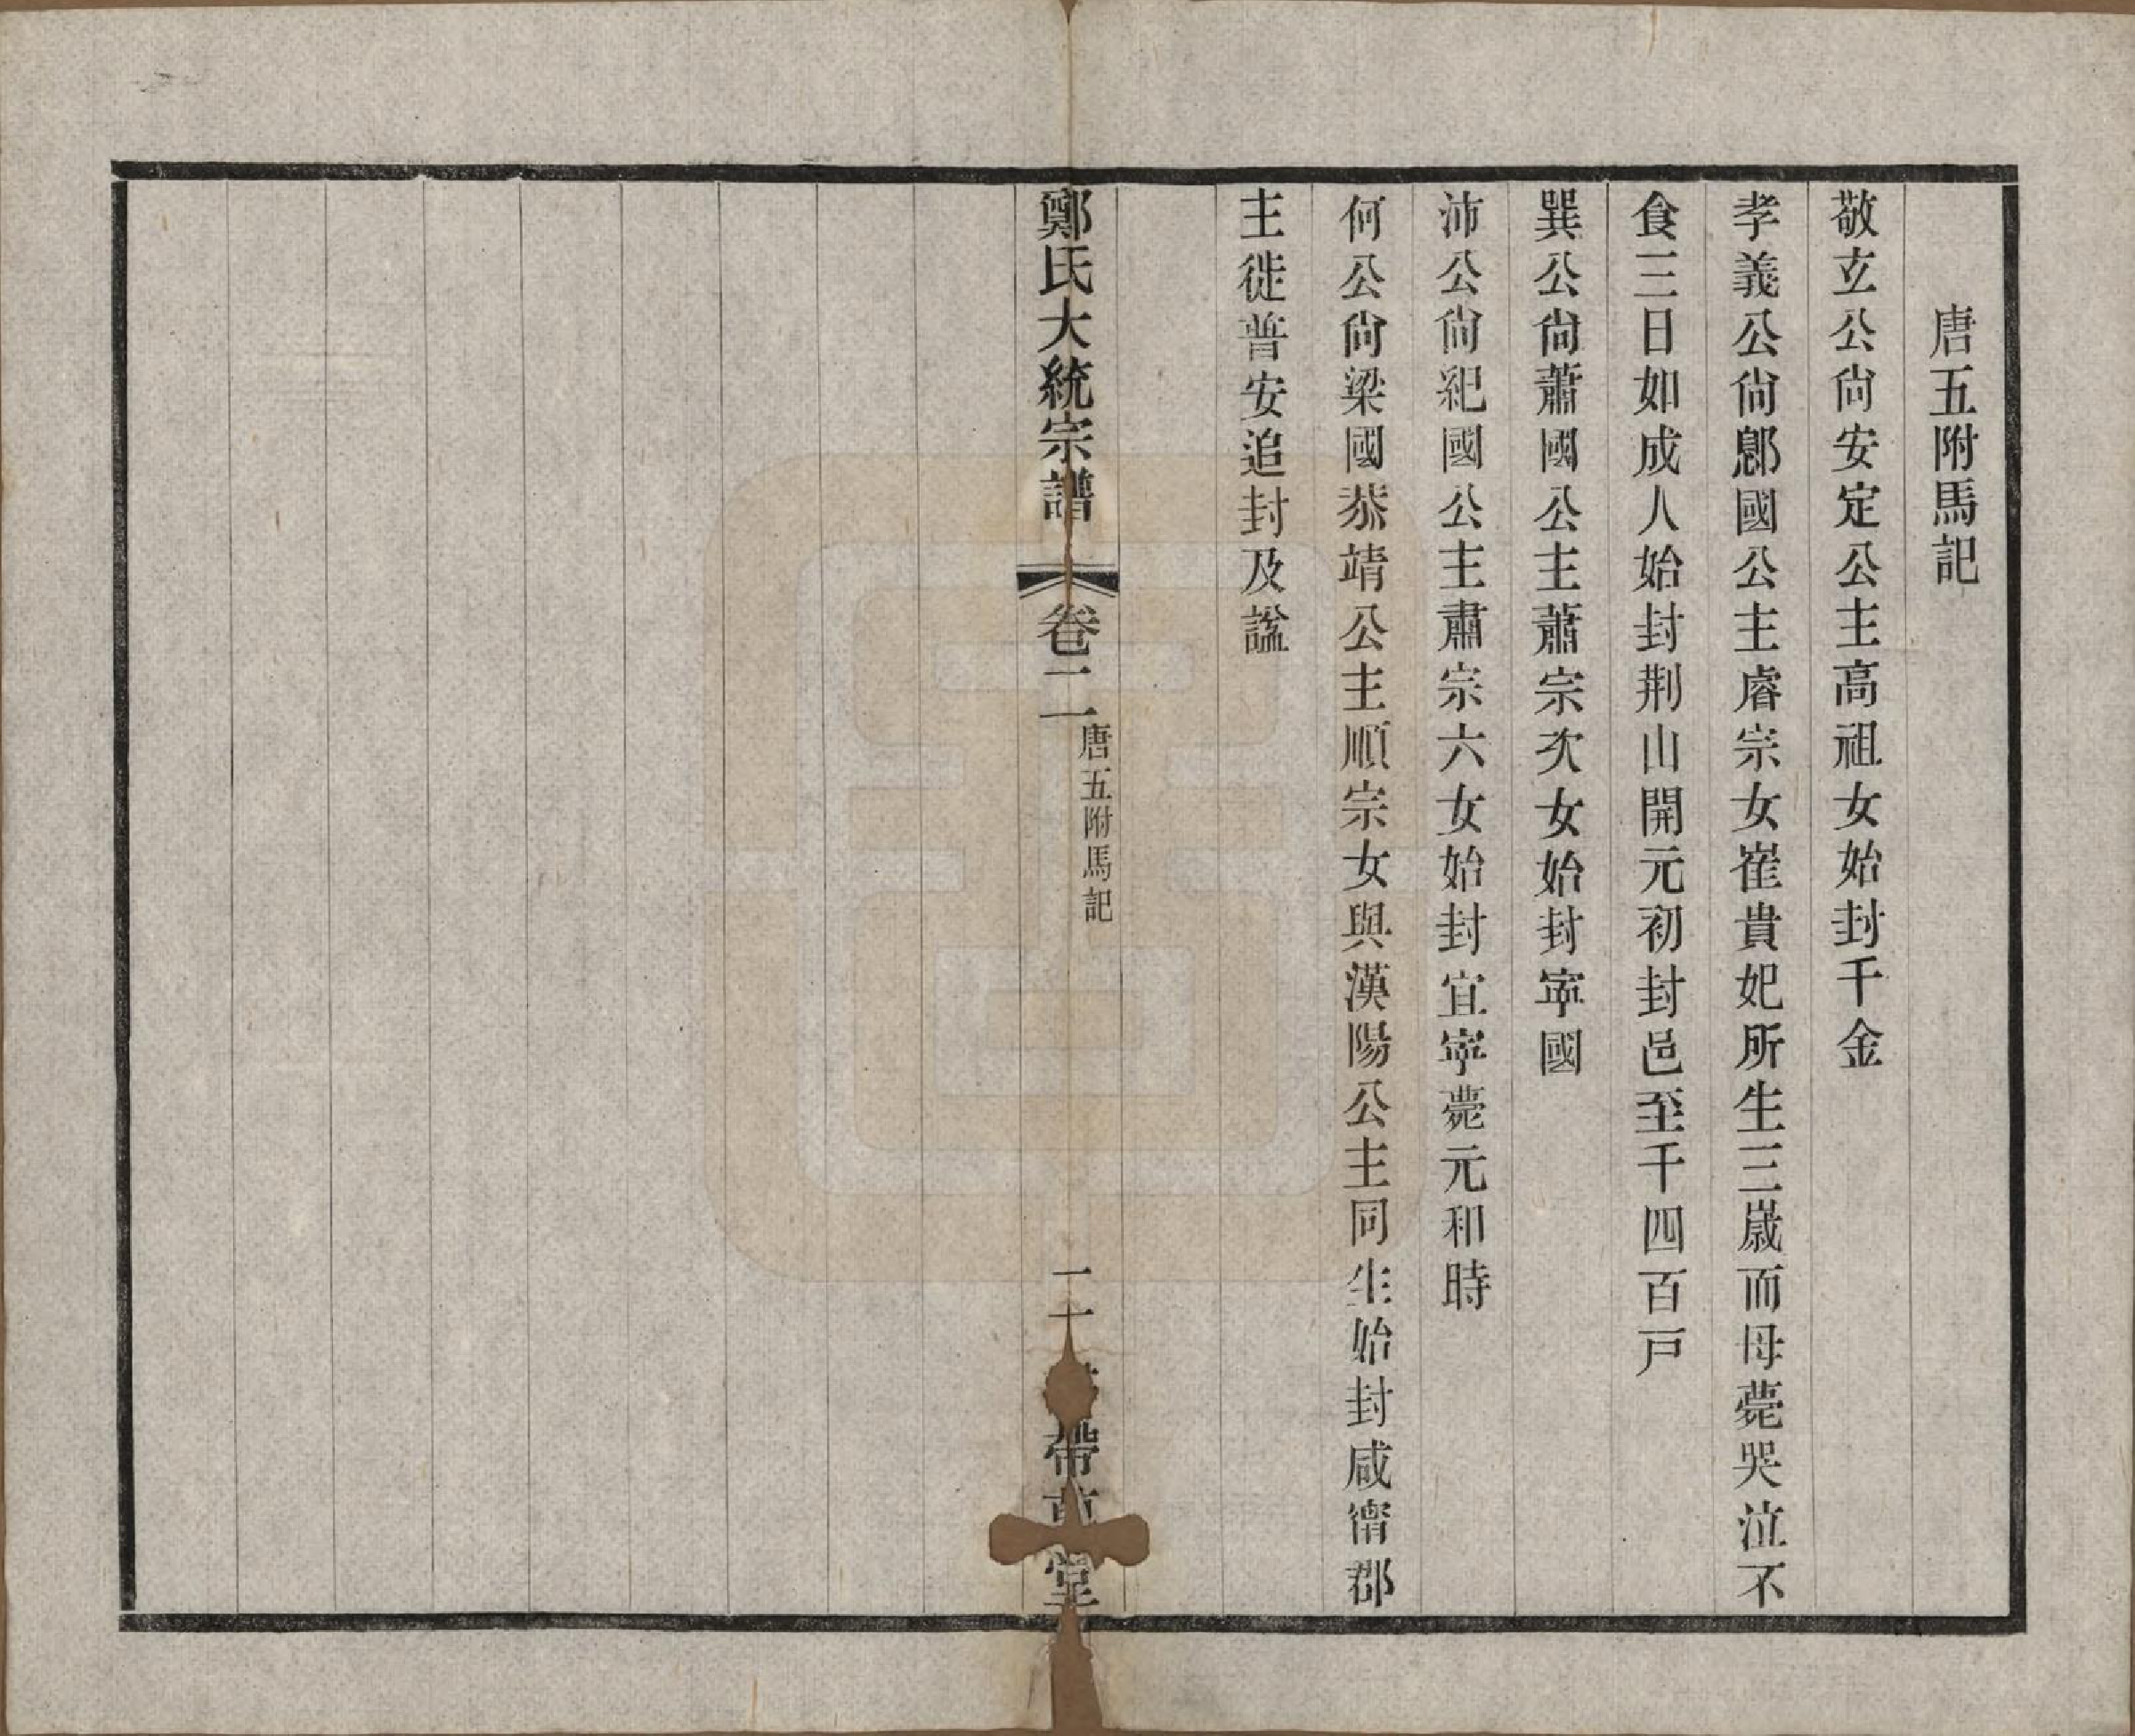 唐五附馬記
敬玄公尙安定公主高祖女始封千金
孝義公尙鄎國公主睿宗女崔貴妃所生三歲而母薨哭泣不
食三日如成人始封荆山開元初封邑至千四百戸
巽公尙蕭國公主蕭宗次女始封寜國
沛公尙紀國公主肅宗六女始封宜寜薨元和時
何公尙梁國恭靖公主順宗女與漢陽公主同生始封咸甯郡
主徙普安追封及諡
鄭氏大統宗譜
卷二
唐五附馬記
帶
堂